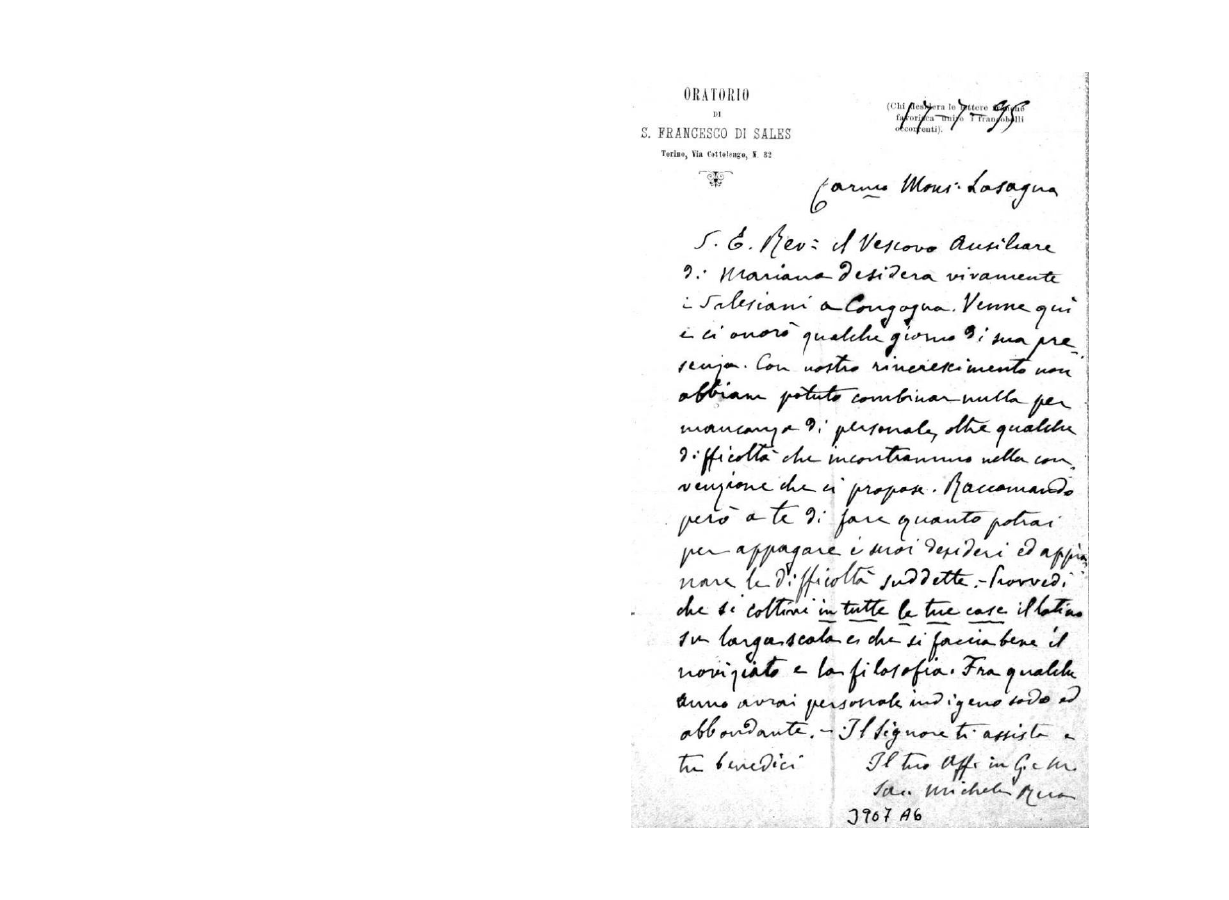 ORATORIO
DI
S. FRANCESCO DI SALES
Torino, Via Cottolengo, N. 32
(Chi desidera le lettere
favorisca unire i francobolli
occorrenti).
17-7-95
Carmo Mons. Lasagna
S. E. Rev: il Vescovo Ausiliare
di Mariana desidera vivamente
i Salesiani a Congogna. Venne quì
e ci onorò qualche giorno di sua pre-
senza. Con nostro rincrescimento non
abbiam potuto combinar nulla per
mancanza di personale, oltre qualche
difficoltà che incontrammo nella con-
venzione che ci propose. Raccomando
però a te di fare quanto potrai
per appagare i suoi desideri ed appia
nare le difficoltà suddette. - Provvedi
che si coltivi in tutte le tue case il latino
su larga scala e che si faccia bene il
noviziato e la filosofia. Fra qualche
anno avrai personale indigeno sodo ed
abbondante. - Il Signore ti assista e
tu benedici
Il tuo Aff. in G. e M.
Sac. Michele Rua
3907 A6